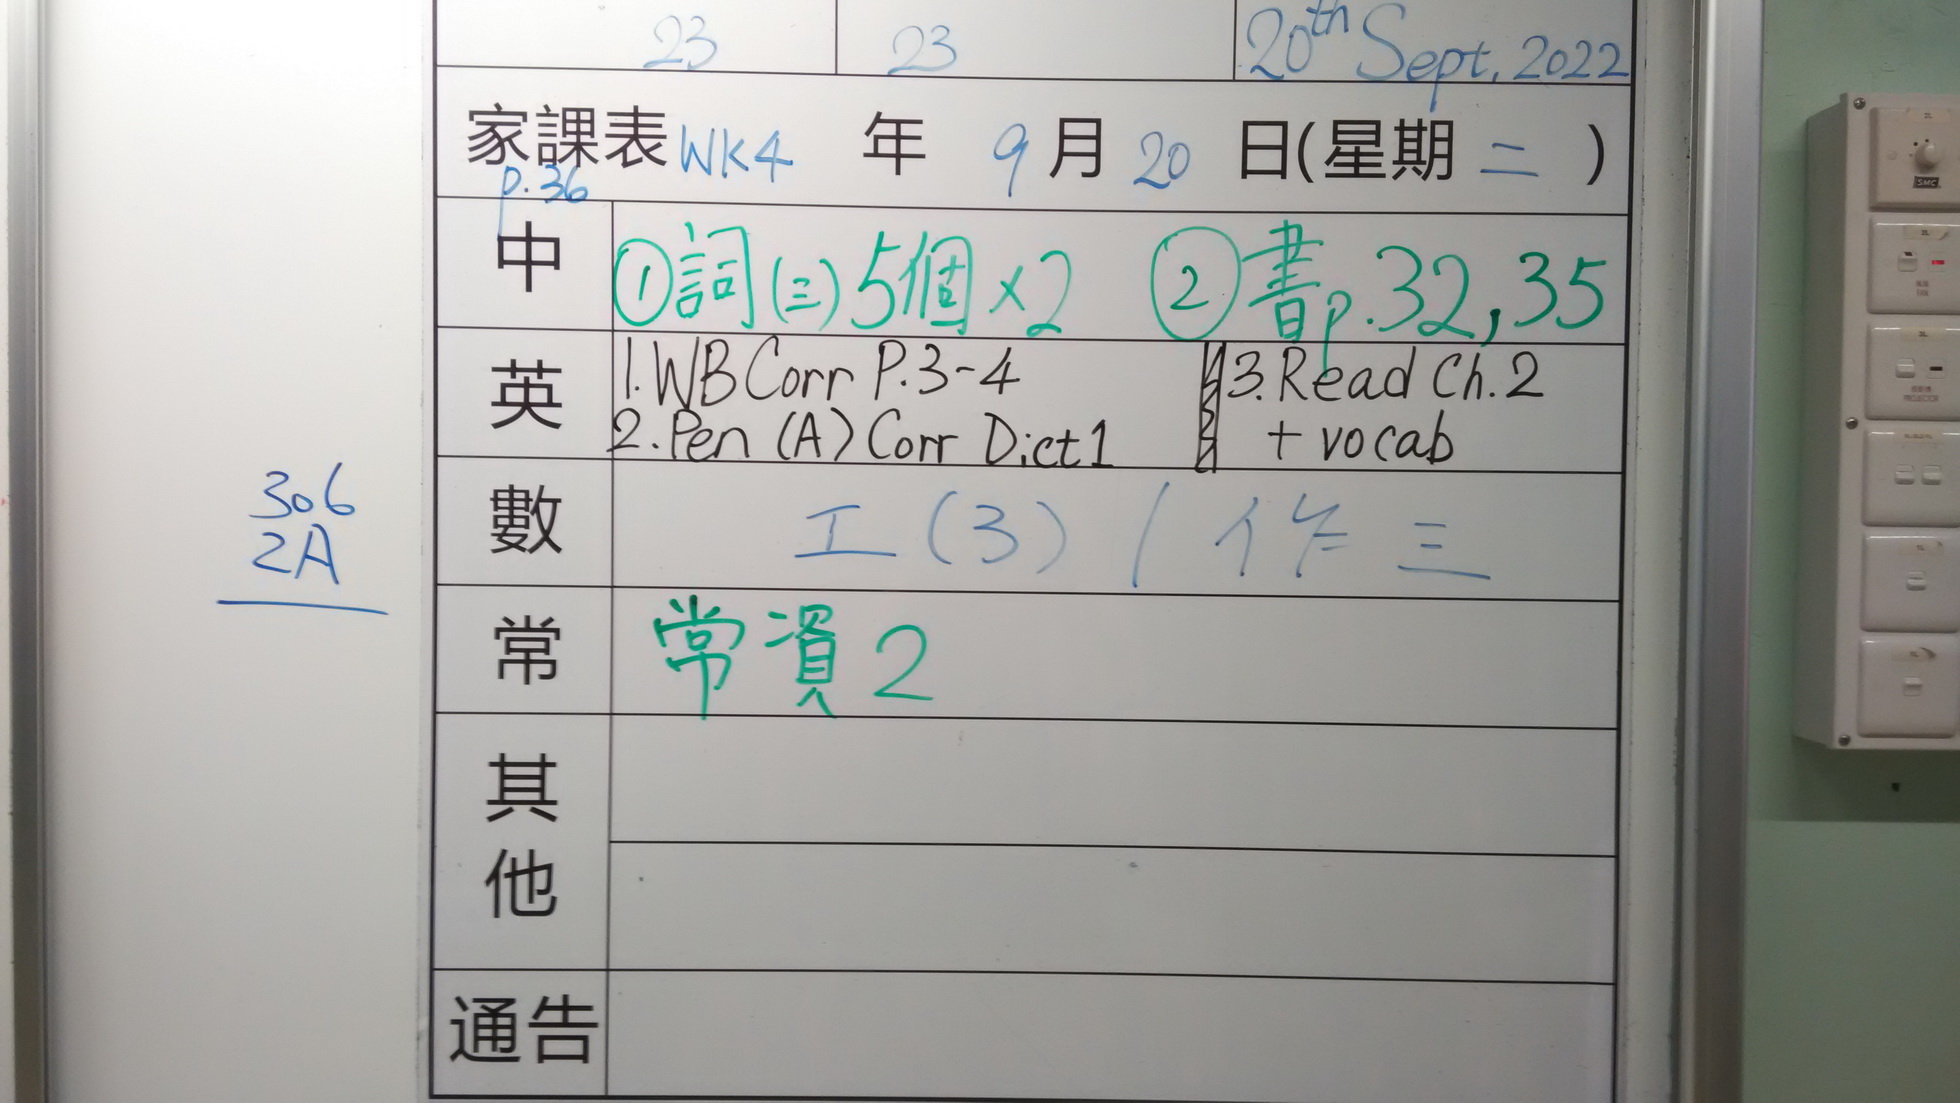 23 23 20th Sept, 2022
家課表 WK4 年 9 月 20 日(星期 二 )
p.36
中 ①詞(三)5個×2 ②書p.32,35
英 1. WB Corr P.3-4 3. Read Ch.2
2. Pen (A) Corr Dict 1 + vocab
306
2A
數 工(3) / 作 三
常 常 2
其他
通告
SMC
PROJECTOR